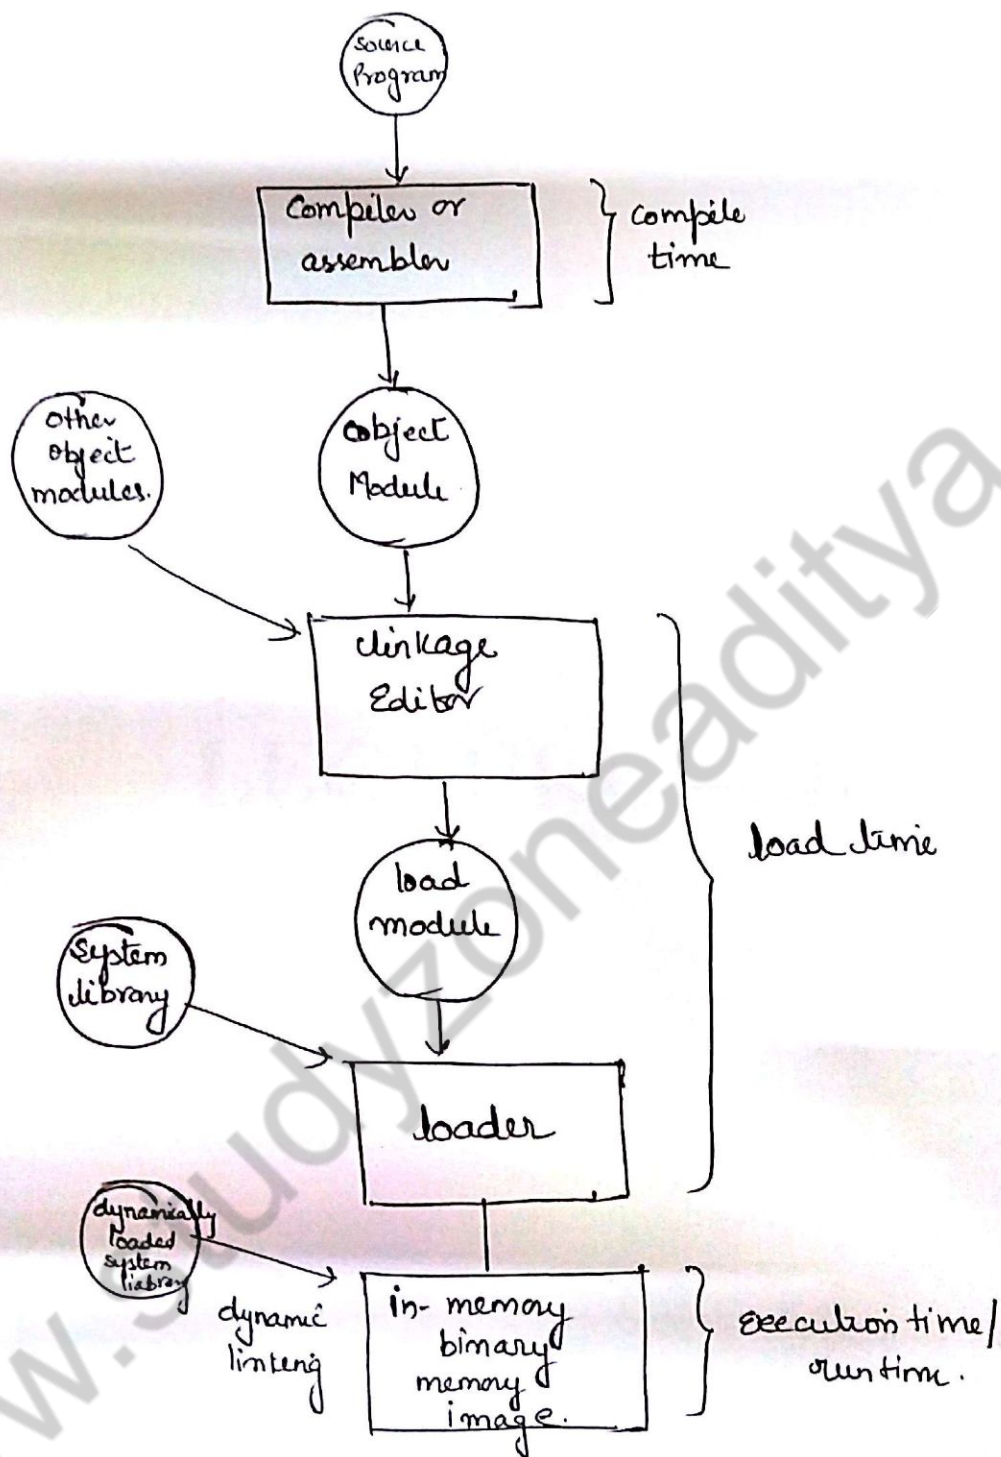 Source
Program
Compiler or
assembler
compile
time
other
object
modules.
object
Module
linkage
Editor
load
module
load time
system
library
loader
dynamically
loaded
system
liabray
dynamic
linking
in-memory
binary
memory
image.
execution time/
run time.
w.studyzoneaditya